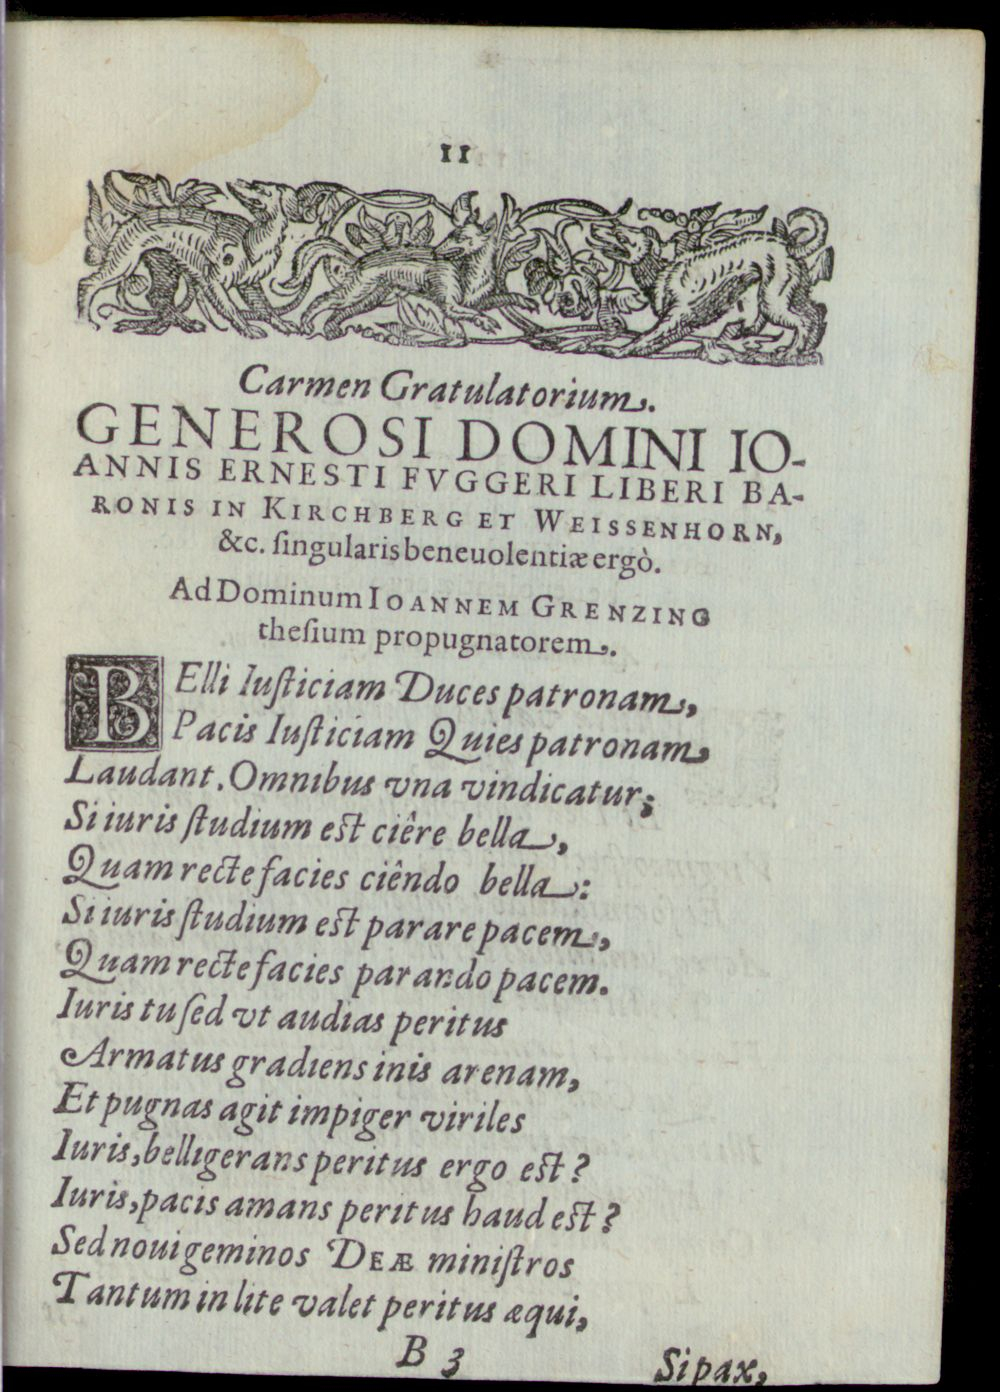 11
Carmen Gratulatorium.
GENEROSI DOMINI IO-
ANNIS ERNESTI FVGGERI LIBERI BA-
RONIS IN KIRCHBERG ET WEISSENHORN,
&c. ſingularis beneuolentiæ ergò.
Ad Dominum IOANNEM GRENZING
theſium propugnatorem.
BElli Iuſticiam Duces patronam,
Pacis Iuſticiam Quies patronam
Laudant. Omnibus vna vindicatur;
Si iuris ſtudium est ciêre bella,
Quam recte facies ciêndo bella:
Si iuris ſtudium est parare pacem,
Quam recte facies parando pacem.
Iuris tu ſed vt audias peritus
Armatus gradiens inis arenam,
Et pugnas agit impiger viriles
Iuris, belligerans peritus ergo est?
Iuris, pacis amans peritus haud est?
Sed noui geminos DEÆ miniſtros
Tantum in lite valet peritus æqui,
B 3
Si pax,